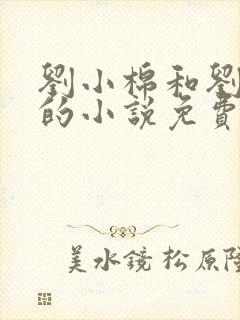 劉小棉和劉
的小說免費
美水鏡 松原隆